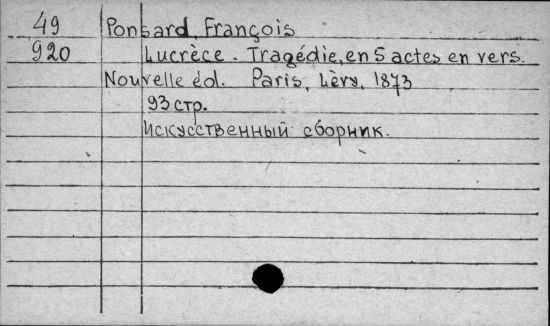 49 Ponsard, François
920 Lucrèce. Tragédie, en 5 actes en vers.
Nouvelle éd. Paris, Lèvy, 1873
93 стр.
Искусственный сборник.